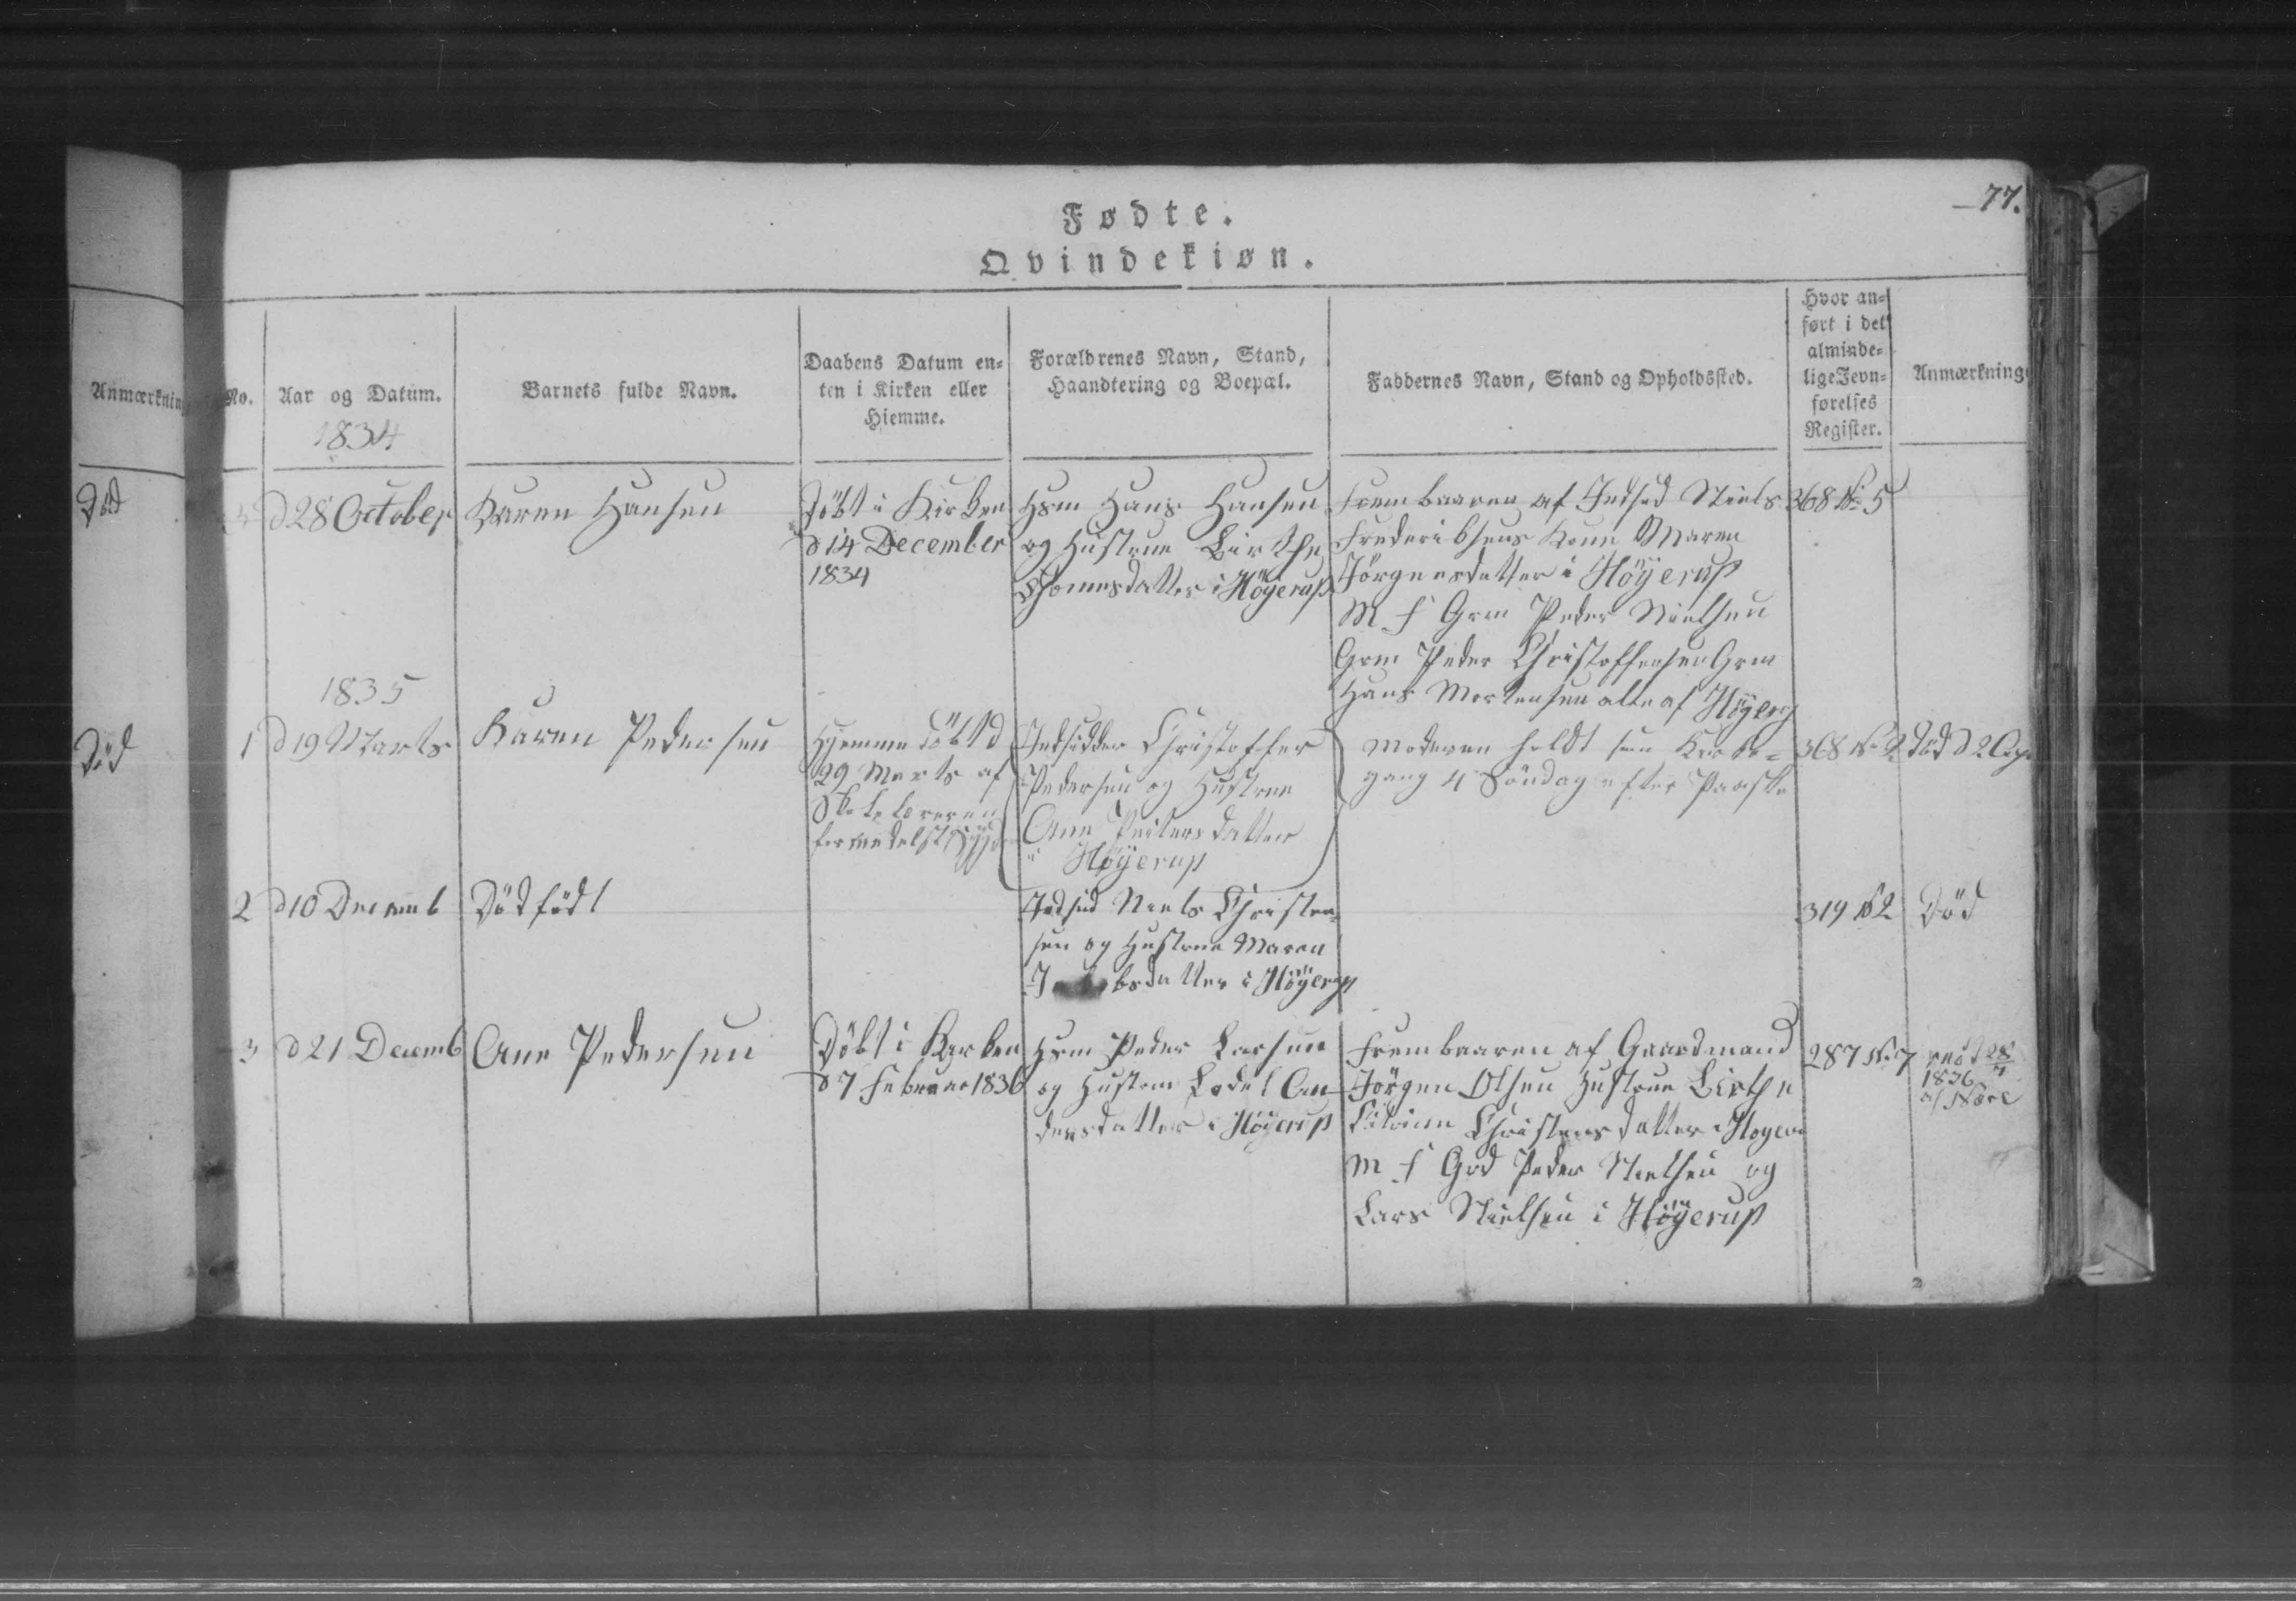 77.
Fødte.
Qvindekiøn.
Anmærkning
No.
Aar og Datum.
1834
Barnets fulde Navn.
Daabens Datum en-
ten i Kirken eller
Hiemme.
Forældrenes Navn, Stand,
Haandtering og Boepæl.
Faddernes Navn, Stand og Opholdssted.
Hvor an-
ført i det
alminde-
lige Jevn-
førelses
Register.
Anmærkning
Död
5
d 28 October
Karen Hansen
Döbt i Kirken
d 14 December
1834
Hsm Hans Hansen
og Hustrue Birthe
Thomesdatter i Höyerup
Frembaaren af Indsid Niels
Frederiksens Kone Maren
Jörgensdatter i Höyerup
M f Grm Peder Nielsen
Grm Peder Christoffersen Grm
Hans Mortensen alle af Höyerup
368 No 5
Död
1835
1
d 19 Marts
Karen Pedersen
Hjemmedöbt d
29 Marts af
Skolelæreren
formedelst
Indsidder Christoffer
Pedersen og Hustrue
Ane Peitersdatter
i Höyerup
Moderen holdt sin Kirke-
gang 4 Söndag efter Paaske
368 No 2
Död d 2 Apr
2
d 10 Decemb
Dödfödt
Indsid Niels Christen-
sen og Hustrue Maren
Jakobsdatter i Höyerup
319 No 2
Död
3
d 21 Decemb
Ane Pedersen
Döbt i Kirken
d 7 Februar 1836
Hsm Peder Larsen
og Hustrue Bodel An-
dersdatter i Höyerup
Frembaaren af Gaardmand
Jörgen Olsen Hustrue Birthe
Catrine Christensdatter i Höyeru
M f Grd Peder Nielsen og
Lars Nielsen i Höyerup
287 No 7
28
7
1836
af